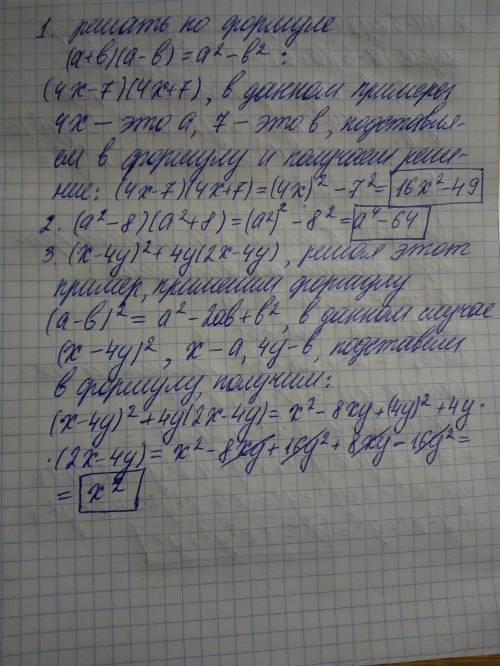 1. решать по формуле
(a+b)(a-b) = a² - b² :
(4x-7)(4x+7), в данном примере
4x - это a, 7 - это b, подставля-
ем в формулу и получаем реше-
ние: (4x-7)(4x+7) = (4x)² - 7² = 16x² - 49
2. (a²-8)(a²+8) = (a²)² - 8² = a⁴ - 64
3. (x-4y)² + 4y(2x-4y), решая этот
пример, применим формулу
(a-b)² = a² - 2ab + b², в данном случае
(x-4y)², x - a, 4y - b, подставим
в формулу, получим:
(x-4y)² + 4y(2x-4y) = x² - 8xy + (4y)² + 4y ·
· (2x-4y) = x² - 8xy + 16y² + 8xy - 16y² =
= x²